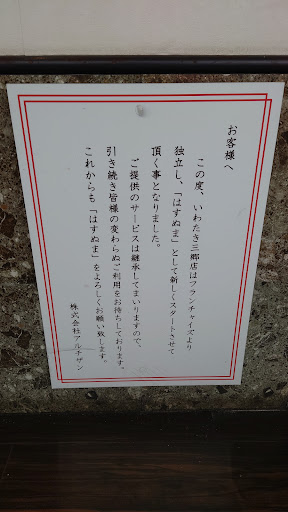 お客様へ
この度、いわたき三郷店はフランチャイズより
独立し、「はすぬま」として新しくスタートさせて
頂く事となりました。
ご提供のサービスは継承してまいりますので、
引き続き皆様の変わらぬご利用をお待ちしております。
これからも「はすぬま」をよろしくお願い致します。
株式会社アルチザン